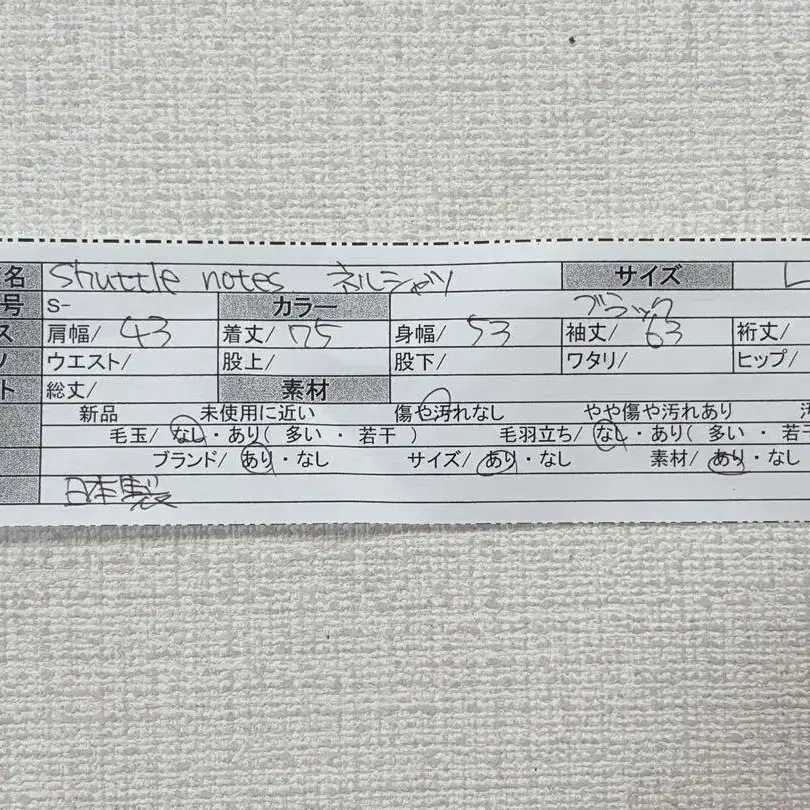 名 Shuttle notes ネルシャツ サイズ L
号 S- カラー ブラック
ス 肩幅/ 43 着丈/ 75 身幅/ 53 袖丈/ 63 裄丈/
ウエスト/ 股上/ 股下/ ワタリ/ ヒップ/
ト 総丈/ 素材
新品 未使用に近い 傷や汚れなし やや傷や汚れあり
毛玉/ なし・あり( 多い ・ 若干 ) 毛羽立ち/ なし・あり( 多い ・ 若干
ブランド/ あり・なし サイズ/ あり・なし 素材/ あり・なし
日本製